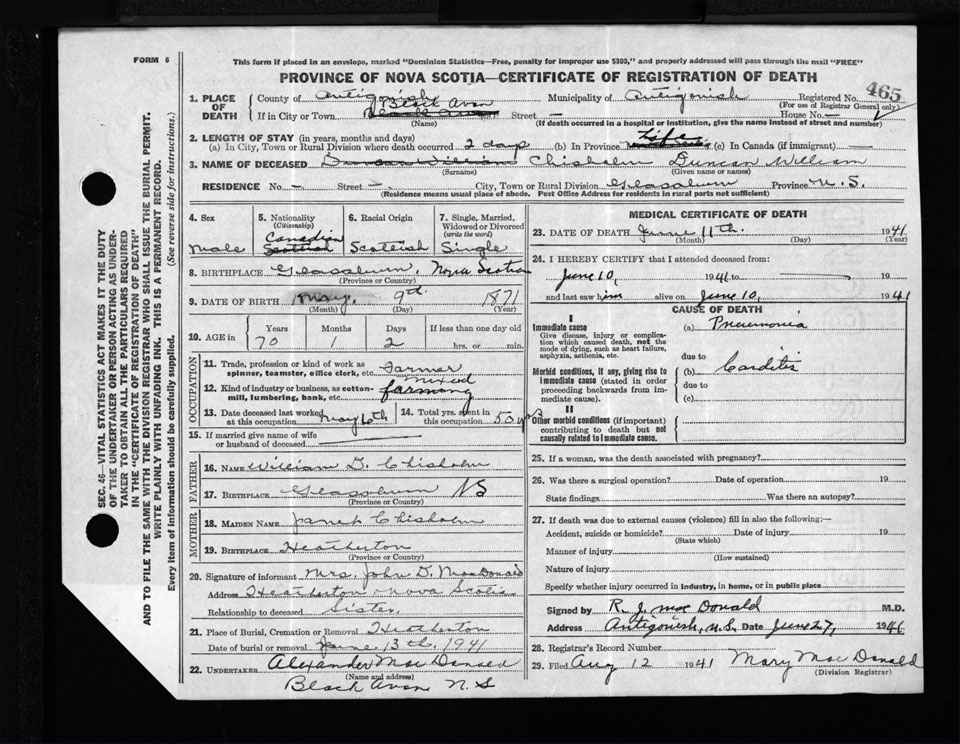 FORM 6
This form if placed in an envelope, marked "Dominion Statistics—Free, penalty for improper use $300," and properly addressed will pass through the mail "FREE"
PROVINCE OF NOVA SCOTIA—CERTIFICATE OF REGISTRATION OF DEATH
465
1. PLACE OF DEATH County of Antigonish Municipality of Antigonish Registered No.
(For use of Registrar General only)
If in City or Town Black Avon Street — House No. —
(Name) (If death occurred in a hospital or institution, give the name instead of street and number)
2. LENGTH OF STAY (in years, months and days)
(a) In City, Town or Rural Division where death occurred 2 days (b) In Province Life (c) In Canada (if immigrant) —
3. NAME OF DECEASED Duncan William Chisholm Duncan William
(Surname) (Given name or names)
RESIDENCE No. — Street — City, Town or Rural Division Glassburn Province N.S.
(Residence means usual place of abode. Post Office Address for residents in rural parts not sufficient)
SEC. 46—VITAL STATISTICS ACT MAKES IT THE DUTY
OF THE UNDERTAKER OR PERSON ACTING AS UNDER-
TAKER TO OBTAIN ALL THE PARTICULARS REQUIRED
IN THE "CERTIFICATE OF REGISTRATION OF DEATH"
AND TO FILE THE SAME WITH THE DIVISION REGISTRAR WHO SHALL ISSUE THE BURIAL PERMIT.
WRITE PLAINLY WITH UNFADING INK. THIS IS A PERMANENT RECORD.
Every item of information should be carefully supplied. (See reverse side for instructions.)
4. Sex
Male
5. Nationality
(Citizenship)
Canadian
Scottish
6. Racial Origin
Scottish
7. Single, Married,
Widowed or Divorced
(write the word)
Single
8. BIRTHPLACE Glassburn, Nova Scotia
(Province or Country)
9. DATE OF BIRTH May 9th 1871
(Month) (Day) (Year)
10. AGE in Years Months Days If less than one day old
70 1 2 hrs. or min.
OCCUPATION
11. Trade, profession or kind of work as
spinner, teamster, office clerk, etc. Farmer
12. Kind of industry or business, as cotton-
mill, lumbering, bank, etc. mixed farming
13. Date deceased last worked
at this occupation May 10th
14. Total yrs. spent in
this occupation 50 yrs
15. If married give name of wife
or husband of deceased
FATHER
16. NAME William D. Chisholm
17. BIRTHPLACE Glassburn NS
(Province or Country)
MOTHER
18. MAIDEN NAME Janet Chisholm
19. BIRTHPLACE Heatherton
(Province or Country)
20. Signature of informant Mrs. John D. MacDonald
Address Heatherton Nova Scotia
Relationship to deceased Sister
21. Place of Burial, Cremation or Removal Heatherton
Date of burial or removal June 13th, 1941
22. UNDERTAKER Alexander MacDonald
(Name and address)
Black Avon N.S
MEDICAL CERTIFICATE OF DEATH
23. DATE OF DEATH June 11th. 1941
(Month) (Day) (Year)
24. I HEREBY CERTIFY that I attended deceased from:
June 10, 1941 to 19
and last saw him alive on June 10, 1941
CAUSE OF DEATH
I
Immediate cause (a) Pneumonia
Give disease, injury or complica-
tion which caused death, not the
mode of dying, such as heart failure,
asphyxia, asthenia, etc.
due to
Morbid conditions, if any, giving rise to
immediate cause (stated in order
proceeding backwards from im-
mediate cause).
(b) Carditis
due to
(c)
II
Other morbid conditions (if important)
contributing to death but not
causally related to immediate cause.
25. If a woman, was the death associated with pregnancy?
26. Was there a surgical operation? Date of operation 19
State findings Was there an autopsy?
27. If death was due to external causes (violence) fill in also the following:—
Accident, suicide or homicide? Date of injury 19
(State which)
Manner of injury
(How sustained)
Nature of injury
Specify whether injury occurred in industry, in home, or in public place
Signed by R. J. MacDonald M.D.
Address Antigonish, N.S. Date June 27, 1941
28. Registrar's Record Number
29. Filed Aug 12 1941 Mary MacDonald
(Division Registrar)